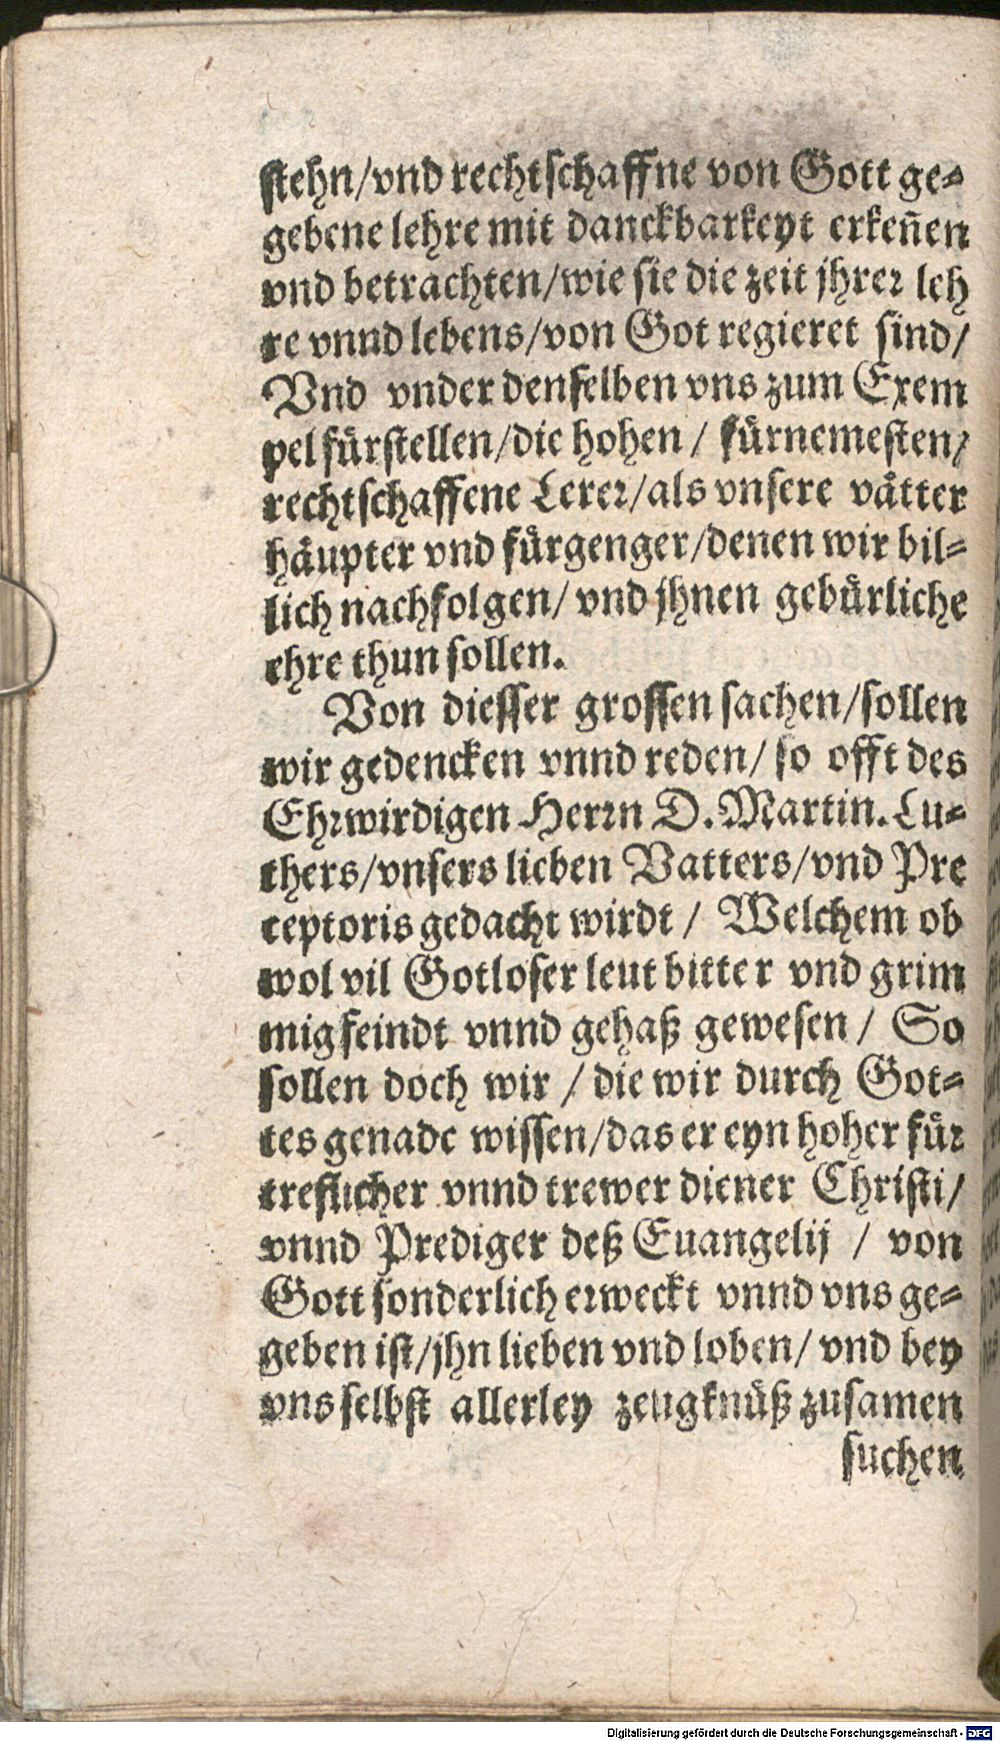 stehn/vnd rechtschaffne von Gott ge-
gebene lehre mit danckbarkeyt erkeñen
vnd betrachten/wie sie die zeit jhrer leh
re vnnd lebens/von Got regieret sind/
Vnd vnder denselben vns zum Exem
pel fürstellen/die hohen/ fürnemesten/
rechtschaffene Lerer/als vnsere vätter
häupter vnd fürgenger/denen wir bil-
lich nachfolgen/ vnd jhnen gebürliche
ehre thun sollen.
Von diesser grossen sachen/sollen
wir gedencken vnnd reden/ so offt des
Ehrwirdigen Herrn D. Martin. Lu-
thers/vnsers lieben Vatters/vnd Pre
ceptoris gedacht wirdt / Welchem ob
wol vil Gotloser leut bitter vnd grim
mig feindt vnnd gehaß gewesen / So
sollen doch wir / die wir durch Got-
tes genade wissen/das er eyn hoher für
treflicher vnnd trewer diener Christi/
vnnd Prediger deß Euangelij / von
Gott sonderlich erweckt vnnd vns ge-
geben ist/jhn lieben vnd loben/ vnd bey
vns selbst allerley zeugknüß zusamen
suchen
Digitalisierung gefördert durch die Deutsche Forschungsgemeinschaft - DFG